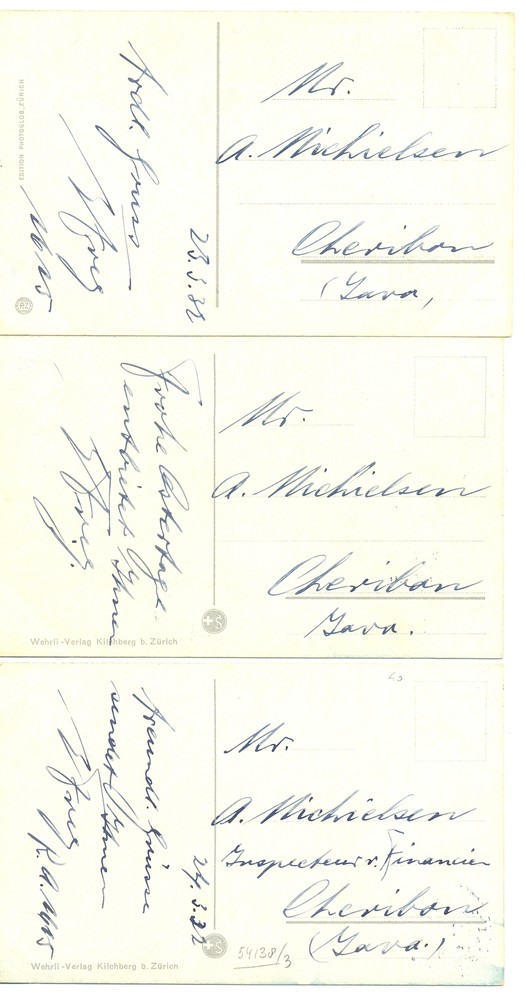 EDITION PHOTOGLOB, ZÜRICH
Frdl. Gruss
23.3.32
Mr.
A. Michielsen
Cheribon
(Java,
Frohe Ostertage
entbietet Ihnen
Wehrli-Verlag Kilchberg b. Zürich
Mr.
A. Michielsen
Cheribon
Java.
freundl. Grüsse
sendet Ihnen
24.3.32
Wehrli-Verlag Kilchberg b. Zürich
Mr.
A. Michielsen
Inspecteur v. Financien
Cheribon
(Java.)
54138/3